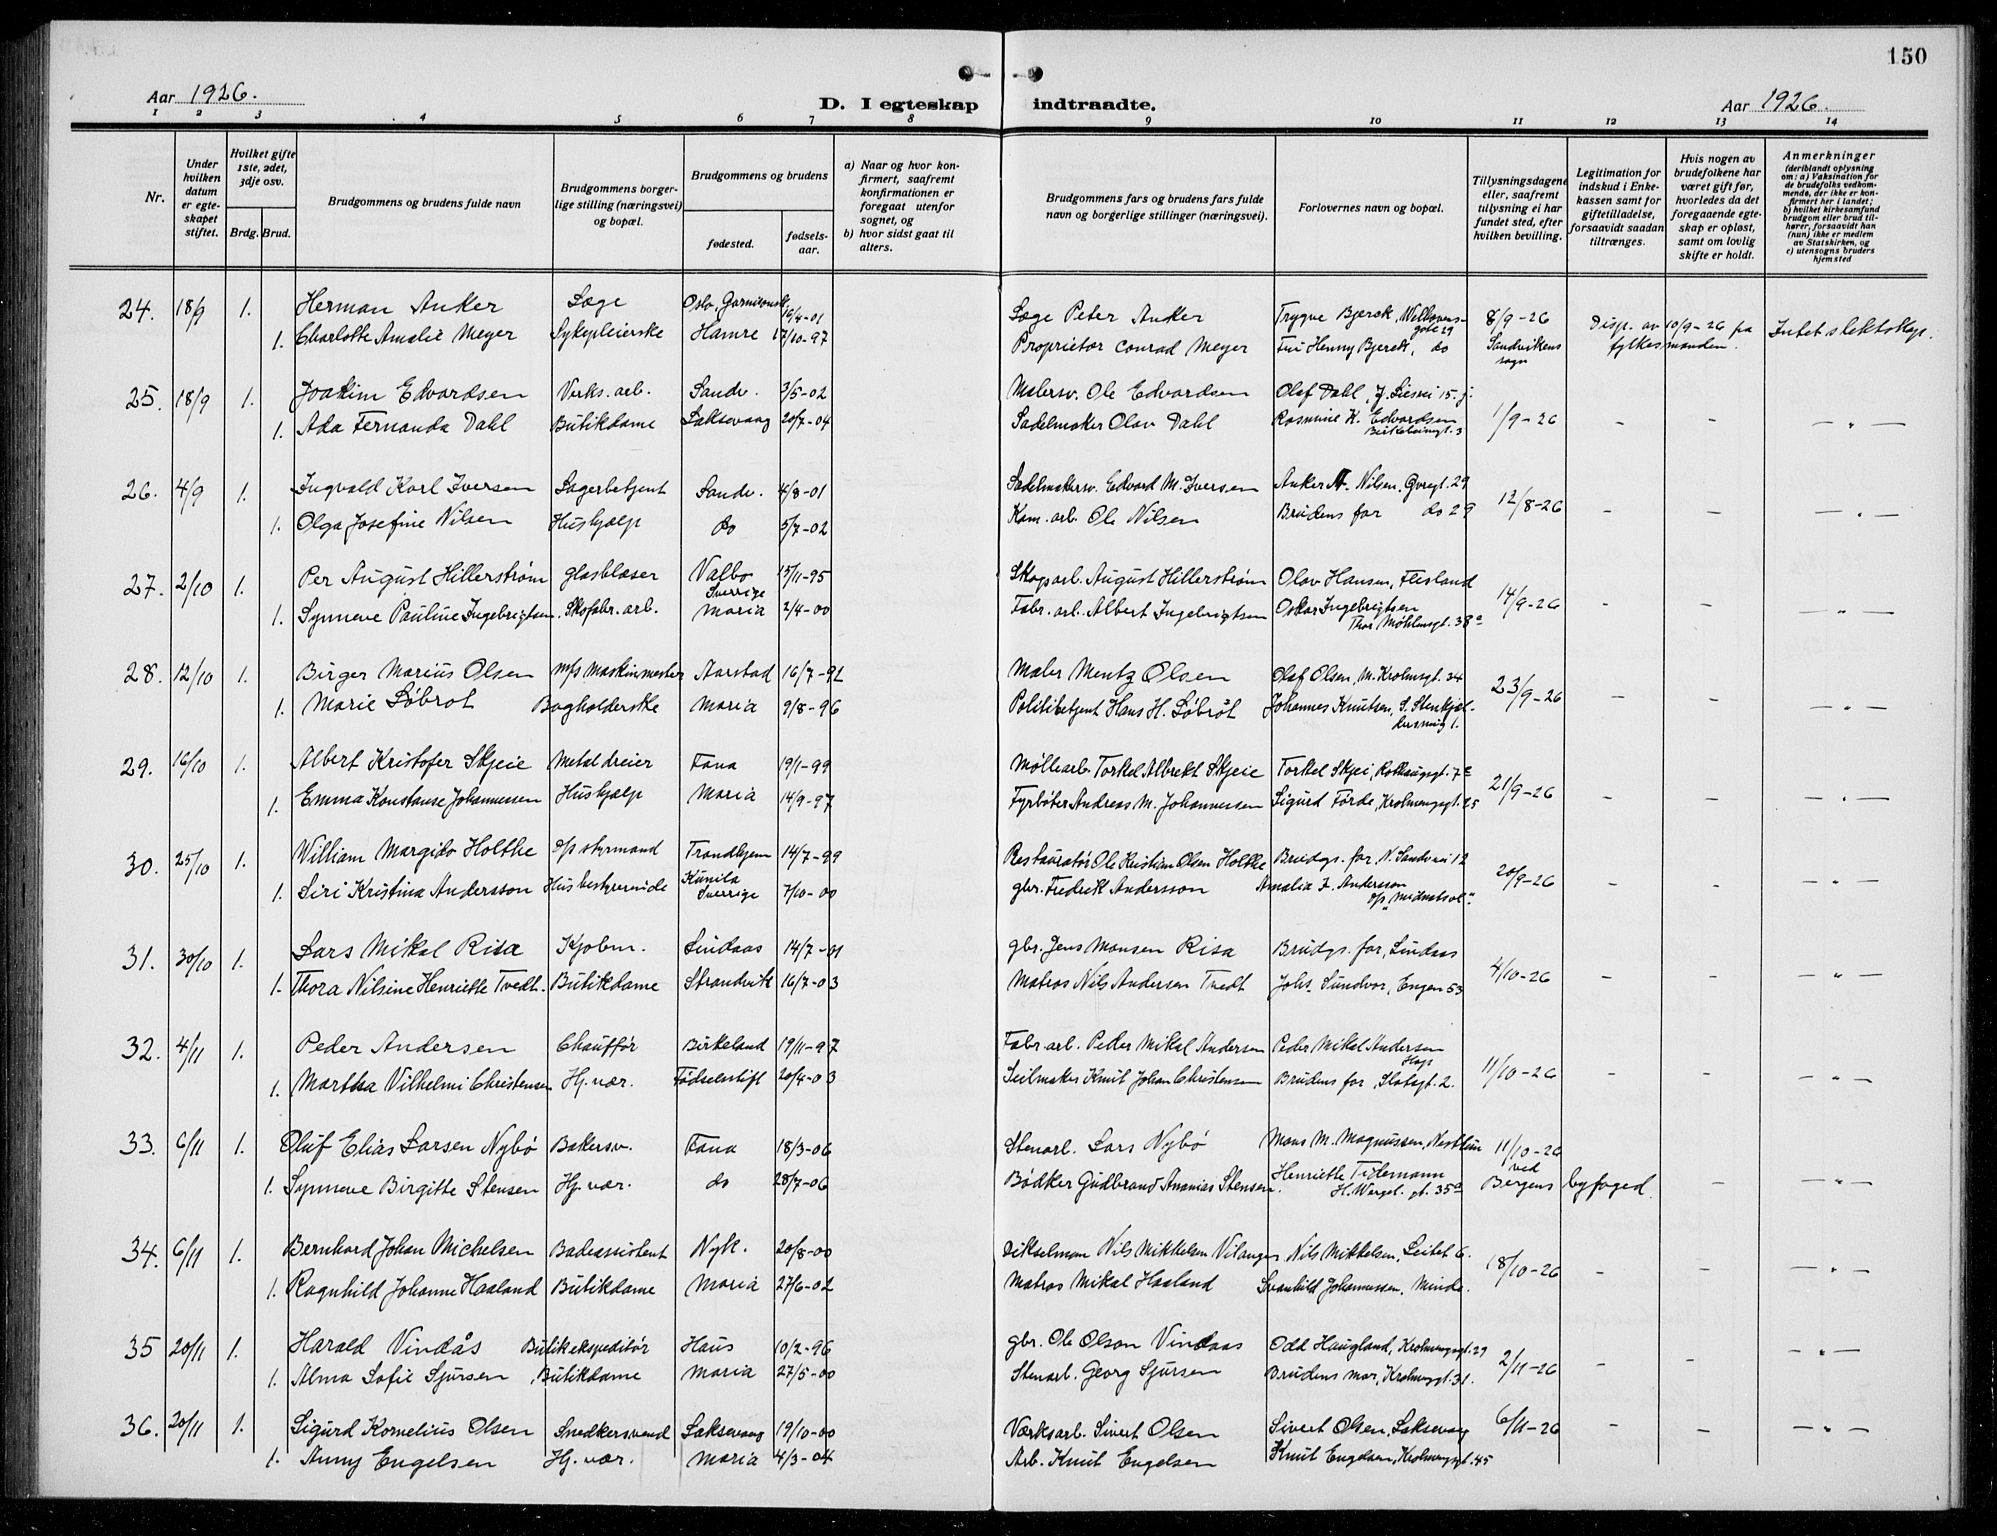 150
Aar 1926.
D. I egteskap indtraadte.
Aar 1926.
1 2 3 4 5 6 7 8 9 10 11 12 13 14
Nr.
Under hvilken datum er egte-skapet stiftet.
Hvilket gifte 1ste, 2det, 3dje osv.
Brdg. Brud.
Brudgommens og brudens fulde navn
Brudgommens borger-lige stilling (næringsvei) og bopæl.
Brudgommens og brudens
fødested.
fødsels-aar.
a) Naar og hvor kon-firmert, saafremt konfirmationen er foregaat utenfor sognet, og
b) hvor sidst gaat til alters.
Brudgommens fars og brudens fars fulde navn og borgerlige stillinger (næringsvei).
Forlovernes navn og bopæl.
Tillysningsdagene eller, saafremt tillysning ei har fundet sted, efter hvilken bevilling.
Legitimation for indskud i Enke-kassen samt for giftetilladelse, forsaavidt saadan tiltrænges.
Hvis nogen av brudefolkene har været gift før, hvorledes da det foregaaende egte-skap er opløst, samt om lovlig skifte er holdt.
Anmerkninger (deriblandt oplysning om: a) Vaksination for de brudefolks vedkom-mende, der ikke er kon-firmert her i landet; b) hvilket kirkesamfund brudgom eller brud til-hører, forsaavidt han (hun) ikke er medlem av Statskirken, og c) utensogns bruders hjemsted
24. 18/9 1. Herman Anker Læge Oslo, Garnisonsk. 16/4-01 Læge Peter Anker Trygve Bjerck, Welhavens-gate 29 8/9-26 Disp. av 10/9-26 fra fylkesmanden. Intet slektskap.
1. Charlotte Amalie Meyer Sykepleierske Hamre 17/10-97 Proprietær Conrad Meyer Fru Henny Bjerck, do Sandvikens sogn
25. 18/9 1. Joakim Edvardsen Verks. arb. Sandv. 3/5-02 Malersv. Ole Edvardsen Olaf Dahl, J. Liesvei 15. j.
1. Ada Fernanda Dahl Butikdame Laksevaag 20/7-04 Sadelmaker Olav Dahl Rasmine K. Edvardsen Birkelundgt. 3 1/9-26 - - -"-
26. 4/9 1. Ingvald Karl Iversen Lagerbetjent Sandv. 4/8-01 Sadelmakersv. Edvard M. Iversen Anker A. Nilsen, Gyregt. 29
1. Olga Josefine Nilsen Hushjælp do 5/7-02 Kom. arb. Ole Nilsen Brudens far do 29 12/8-26 - - -"-
27. 2/10 1. Per August Hillerstrøm glasblaser Valbo Sverrige 15/11-95 Skogsarb. August Hillerstrøm Olav Hansen, Flesland
1. Synneve Pauline Ingebrigtsen. Skofabr. arb. Maria 2/4-00 Fabr. arb. Albert Ingebrigtsen Oskar Ingebrigtsen Thor Møhlensgt. 38a 14/9-26 - - -"-
28. 12/10 1. Birger Marius Olsen m/s Maskinmester Aarstad 16/7-92 Maler Mentz Olsen Olaf Olsen, M. Krohnsgt. 34
1. Marie Løbrot Bogholderske Maria 9/8-96 Politibetjent Hans H. Løbrot Johannes Knutsen, S. Stenkjel-lersmug 1. 23/9-26 - - -"-
29. 16/10 1. Albert Kristofer Skjeie Metaldreier Fana 19/1-99 Møllearb. Torkel Albrekt Skjeie Torkel Skjei, Rothaugsgt. 7c
1. Emma Konstanse Johannessen Hushjælp Maria 14/9-97 Fyrbøter Andreas M. Johannessen Sigurd Førde, Krohnengsgt. 25 21/9-26 - - -"-
30. 25/10 1. William Margido Holthe o/p styrmand Trondhjem 14/7-99 Restauratør Ole Kristian Olsen Holthe Brudgs. far, N. Sandsvei 12
1. Siri Kristina Andersson Husbestyrerinde Kumla Sverrige 7/10-00 gbr. Fredrik Andersson Amalia F. Andersson o/p "Midnatsol". 20/9-26 - - -"-
31. 30/10 1. Lars Mikal Risa Kjøbm. Lindaas 14/7-01 gbr. Jens Monsen Risa Brudgs. far, Lindaas
1. Thora Nilsine Henriette Tvedt. Butikdame Strandvik 16/7-03 Matros Nils Andersen Tvedt Johs. Sundvor, Engen 53 4/10-26 - - -"-
32. 4/11 1. Peder Andersen Chauffør Birkeland 19/11-97 Fabr. arb. Peder Mikal Andersen Peder Mikal Andersen Hop
1. Martha Vilhelmi Christensen Hj. vær. Fødselsstift 20/4-03 Seilmaker Knut Johan Christensen Brudens far, Slotsgt. 2. 11/10-26 - - -"-
33. 6/11 1. Oluf Elias Larsen Nybø Bakersv. Fana 18/3-06 Stenarb. Lars Nybø Mons M. Magnussen, Nesttun 11/10-26 ved
1. Synneve Birgitte Stensen Hj. vær. do 28/7-06 Bødker Gudbrand Ananias Stensen. Henriette Tidemann H. Wergel. gt. 35a Bergens byfoged. - -"-
34. 6/11 1. Bernhard Johan Michelsen Badeassistent Nyk. 20/8-00 Dikselman Nils Mikkelsen Vilanger Nils Mikkelsen, Leitet 6.
1. Ragnhild Johanne Haaland Butikdame Maria 27/6-02 Matros Mikal Haaland Svanhild Johannessen, Minde. 18/10-26 - - -"-
35 20/11 1. Harald Vindås Butikekspeditør Haus 10/2-96 gbr. Ole Olson Vindaas Odd Haugland, Krohnengsgt. 29
1. Alma Sofie Sjursen Butikdame Maria 27/5-00 Stenarb. Georg Sjursen Brudens mor, Krohnengsgt. 31. 2/11-26 - - -"-
36. 20/11 1. Sigurd Kornelius Olsen Snedkersvend Laksevaag 19/10-00 Værksarb. Sivert Olsen Sivert Olsen, Laksevaag 6/11-26 - - -"-
1. Anny Engelsen Hj. vær. Maria 4/3-04 Arb. Knut Engelsen Knut Engelsen, Krohnengsgt. 45